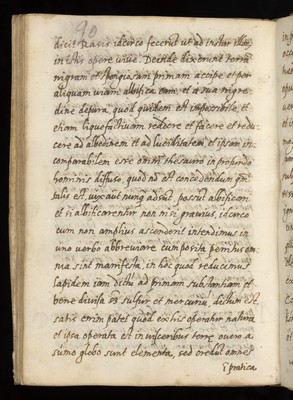 90
dicit Rasis idcirco fecerut ut ad instar illius,
in istis opere viue. Deinde dixerunt terrā
nigram et spongiosam primam accipe et per
aliquam uiam albifica eam, et a sua nigre
dine depura, quod quidem est impossibile, et
etiam liquefactiuam reddere et facere et redu
cere ad albedinem et ad luciditatem et ipsam in
comparabilem esse omni thesauro in profundo
hominis diffuso, quod nō est concedendum
talis est, uix aut nunq̄ adsit possit albificari
et si albificarentur non nisi parum, idcirco
cum non amplius ascenderit intendimus in
uno verbo abbreuiare cum posita penitus om
nia sint manifesta, in hoc quod reducimus
lapidem iam dictū ad primam substantiam et
bene diuisa in sulfur et mercuriū, dictum est
satis enim patet quod ex his operatur natura
et ipsa operata est in uisceribus terre
sumo globo sunt elementa, sed oredet omnes
ī pratica